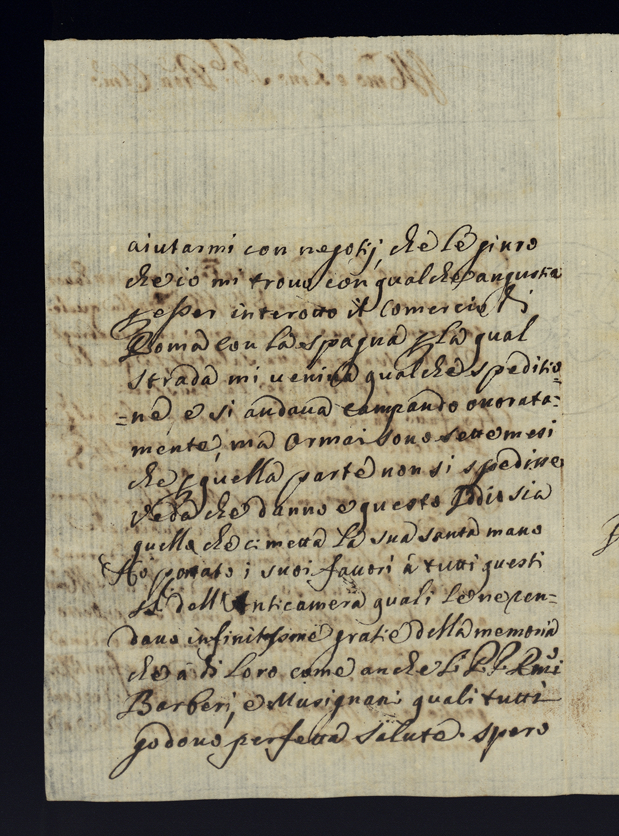 aiutarmi con negotij, che le giuro
che io mi trovo con qualche angustia
p esser interotto il Comercio di
Roma con la Spagna p la qual
strada mi veniva qualche speditio=
=ne e si andava campando onorata=
mente, ma ormai sono sette mesi
che p quella parte non si spedisse
veda che danno è questo Iddio sia
quello che ci metta la sua santa mano
Ho portato i suoi favori à tutti questi
SS.ri dell'Anticamera quali le ne ren=
dono infinitissime gratie della memoria
che à di loro come anche li PP. Rmi
Barberi, e Musignani quali tutti
godono perfetta salute. Spero